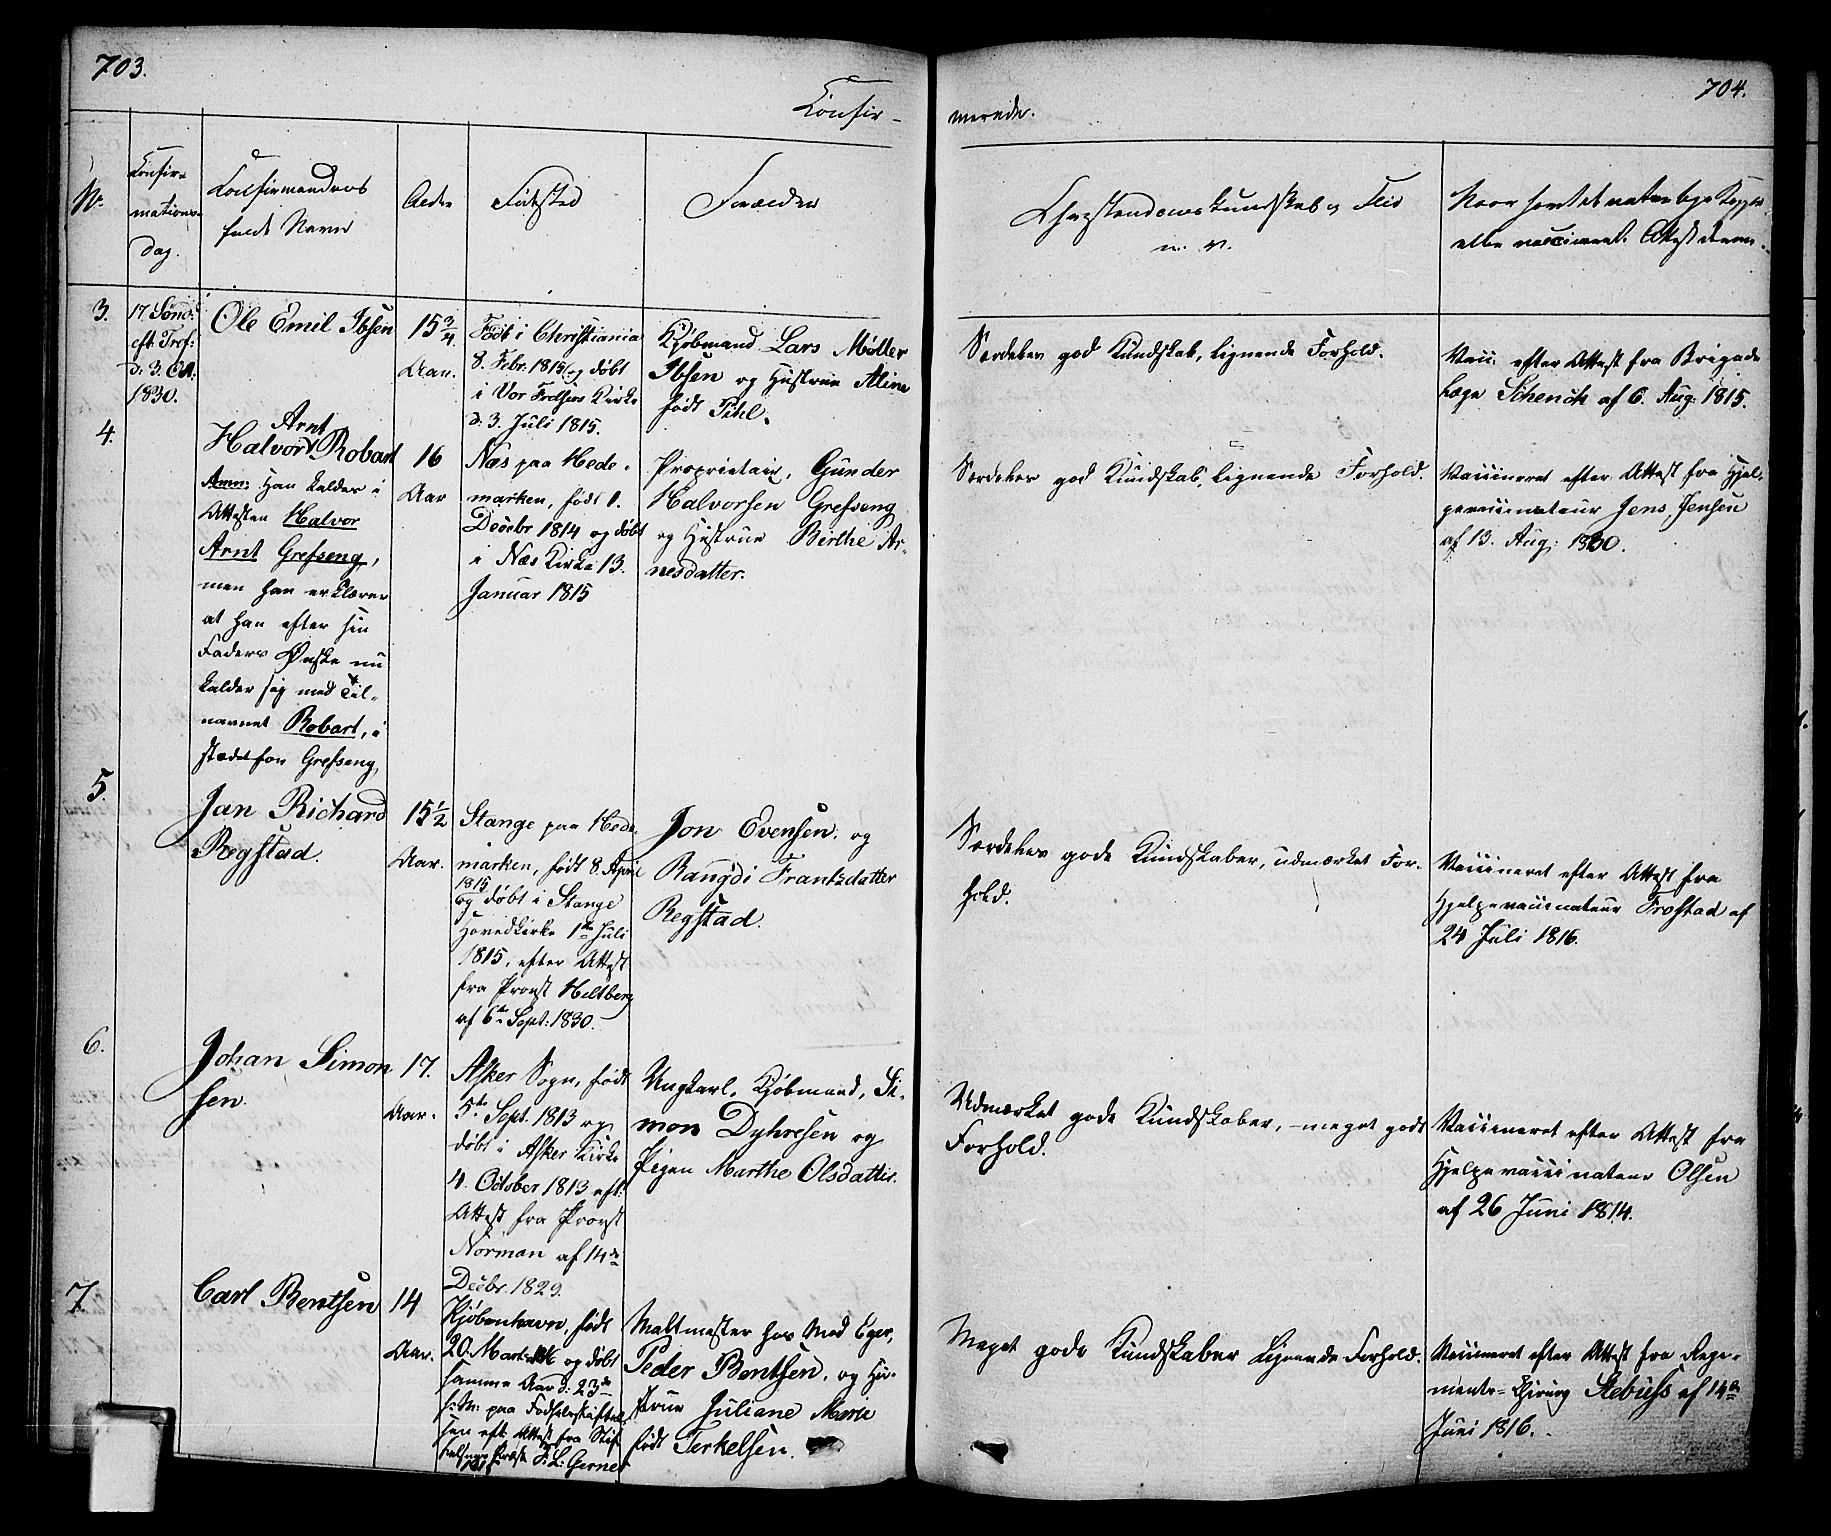 703.
Confir-
No.
Confir-
mations-
dag.
Confirmandens
fulde Navn
Alder
Fødested
Forældre
3.
17. Sønd.
eft. Tref:
d. 3. Oct.
1830.
Ole Emil Ibsen
15 3/4
Aar.
Født i Christiania
8. Febr. 1815 og døbt
i Vor Frelsers Kirke
d. 3. Juli 1815.
Kjøbmand Lars Møller
Ibsen og Hustrue Aline
født Pihl.
4.
Arnt
Halvor Robart
Anm: Han kaldes i
Attesten Halvor
Arnt Grefseng,
men han erklærer
at han efter sin
Faders Ønske nu
kalder sig med Til-
navnet Robart, i
stedet for Grefseng
16
Aar
Næs paa Hede-
marken, født 1.
Decebr 1814 og døbt
i Næs Kirke 13.
Januar 1815
Proprietair, Gunder
Halvorsen Grefseng
og Hustrue Birthe Ar-
nesdatter.
5.
Jan Richard
Regstad.
15 1/2
Aar.
Stange paa Hede-
marken, født 8. April
1815
og døbt i Stange
Hovedkirke 1te Juli
1815, efter Attest
fra Provst Heltberg
af 6te Sept: 1830.
Jon Evensen og
Rangdi Frantzdatter
Regstad.
6.
Johan Simon
sen.
17.
Aar.
Asker Sogn, født
5te Sept. 1813 og
døbt i Asker Kirke
4. October 1813 eft.
Attest fra Provst
Norman af 14de
Decbr. 1829.
Ungkarl, Kjøbmand, Si-
mon Dyhresen og
Pigen Marthe Olsdatter.
7.
Carl Bentsen
14
Aar.
Kjøbenhavn, født
20. Mart. og døbt
samme Aar d. 23de
s: M: paa Fødselsstiftel-
sen eft. Attest fra Stif
telsens Præst F: L: Gerner
Maltmester hos Mad Eger,
Peder Bentsen, og Hu-
strue Juliane Marie
født Terkelsen.
704.
merede.
Christendomskundskab og Flid
m. v.
Naar havt de naturlige Kopper
eller vaccineret. Attest derom.
Særdeles god Kundskab, lignende Forhold.
Vacci. efter Attest fra Brigade
Læge Schenck af 6. Aug: 1815.
Særdeles god Kundskab, lignende Forhold.
Vaccineret efter Attest fra Hjel-
pevaccinateur Jens Jensen
af 13. Aug: 1830.
Særdeles gode Kundskaber, udmærket For-
hold.
Vaccineret efter Attest fra
Hjelpevaccinateur Frostad af
24 Juli 1816.
Udmærket gode Kundskaber, meget godt
Forhold.
Vaccineret efter Attest fra
Hjelpevaccinateur Olsen
af 26 Juni 1814.
Meget gode Kundskaber Lignende Forhold.
Vaccineret efter Attest fra Rege-
ments-Chirurg Stebuss af 14de
Juni 1816.